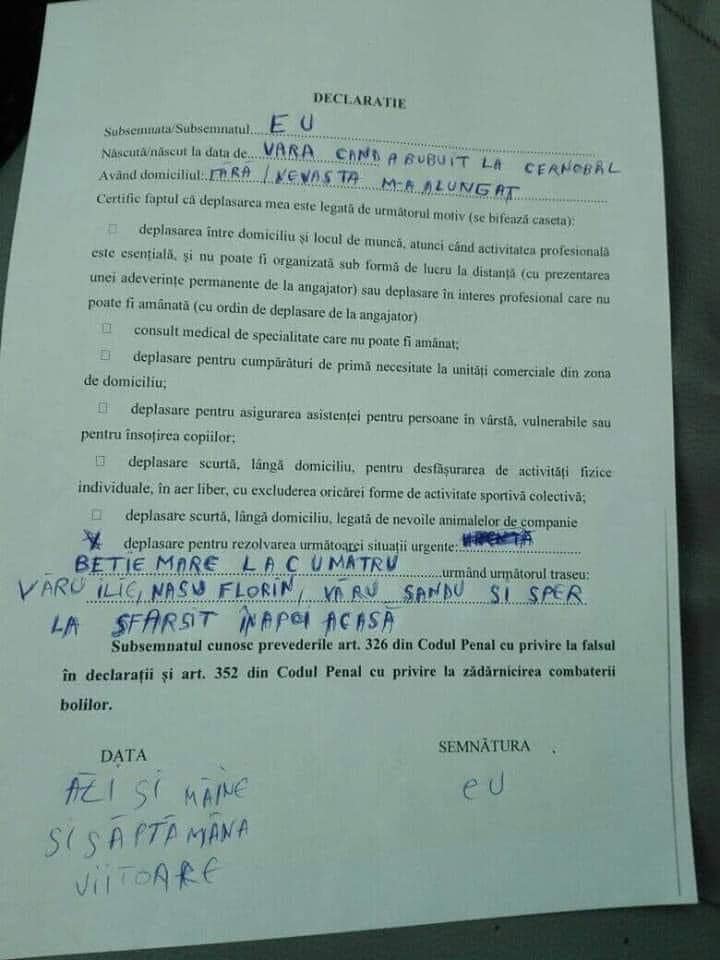 DECLARATIE
Subsemnata/Subsemnatul....EU
Născută/născut la data de..VARA CAND A BUBUIT LA CERNOBÂL
Având domiciliul:.FĂRĂ / NEVASTA M-A ALUNGAT
Certific faptul că deplasarea mea este legată de următorul motiv (se bifează caseta):
☐ deplasarea între domiciliu și locul de muncă, atunci când activitatea profesională
este esențială, și nu poate fi organizată sub formă de lucru la distanță (cu prezentarea
unei adeverințe permanente de la angajator) sau deplasare în interes profesional care nu
poate fi amânată (cu ordin de deplasare de la angajator)
☐ consult medical de specialitate care nu poate fi amânat;
☐ deplasare pentru cumpărături de primă necesitate la unități comerciale din zona
de domiciliu;
☐ deplasare pentru asigurarea asistenței pentru persoane în vârstă, vulnerabile sau
pentru însoțirea copiilor;
☐ deplasare scurtă, lângă domiciliu, pentru desfășurarea de activități fizice
individuale, în aer liber, cu excluderea oricărei forme de activitate sportivă colectivă;
☐ deplasare scurtă, lângă domiciliu, legată de nevoile animalelor de companie
deplasare pentru rezolvarea următoarei situații urgente:
BEȚIE MARE LA CUMATRU.......urmând următorul traseu:
VĂRU ILIE, NAȘU FLORIN, VĂRU SANDU ȘI SPER
LA SFÂRSIT ÎNAPOI ACASĂ
Subsemnatul cunosc prevederile art. 326 din Codul Penal cu privire la falsul
în declarații și art. 352 din Codul Penal cu privire la zădărnicirea combaterii
bolilor.
DATA
SEMNĂTURA
AZI ȘI MÂINE
ȘI SĂPTĂMÂNA
VIITOARE
eu